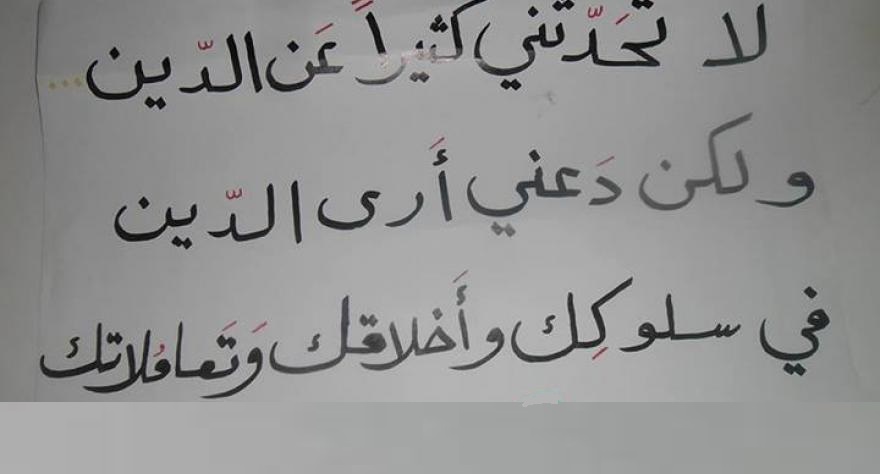 لا تحَدّثني كثيراً عَن الدّين...
ولكن دَعني أَرى الدّين
في سلوكِك وأَخلاقك وَتَعامُلاتك